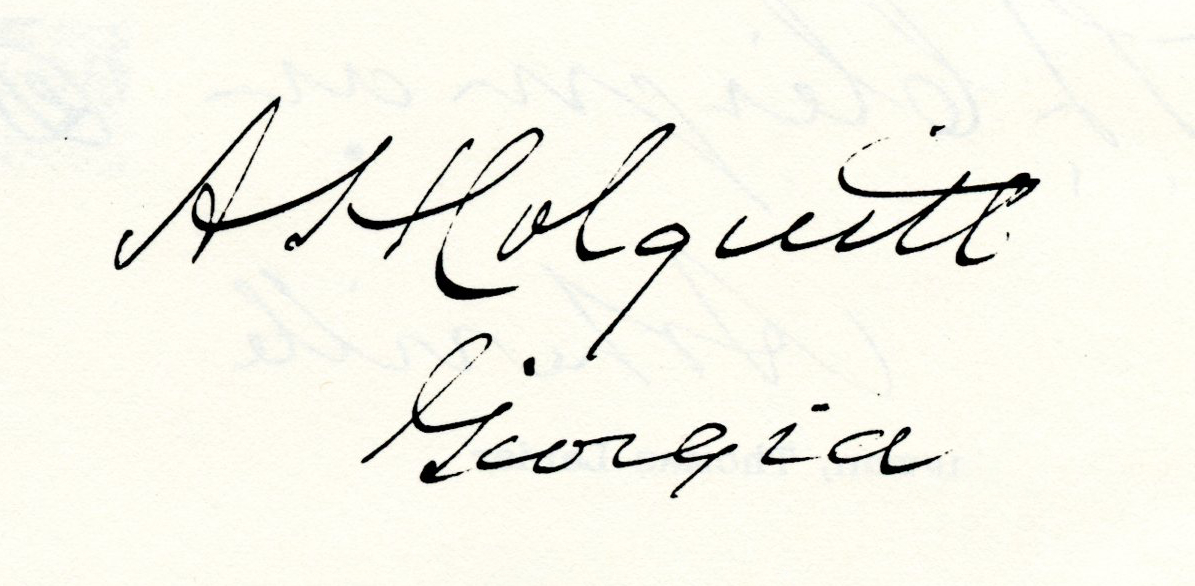 A H Colquitt
Georgia